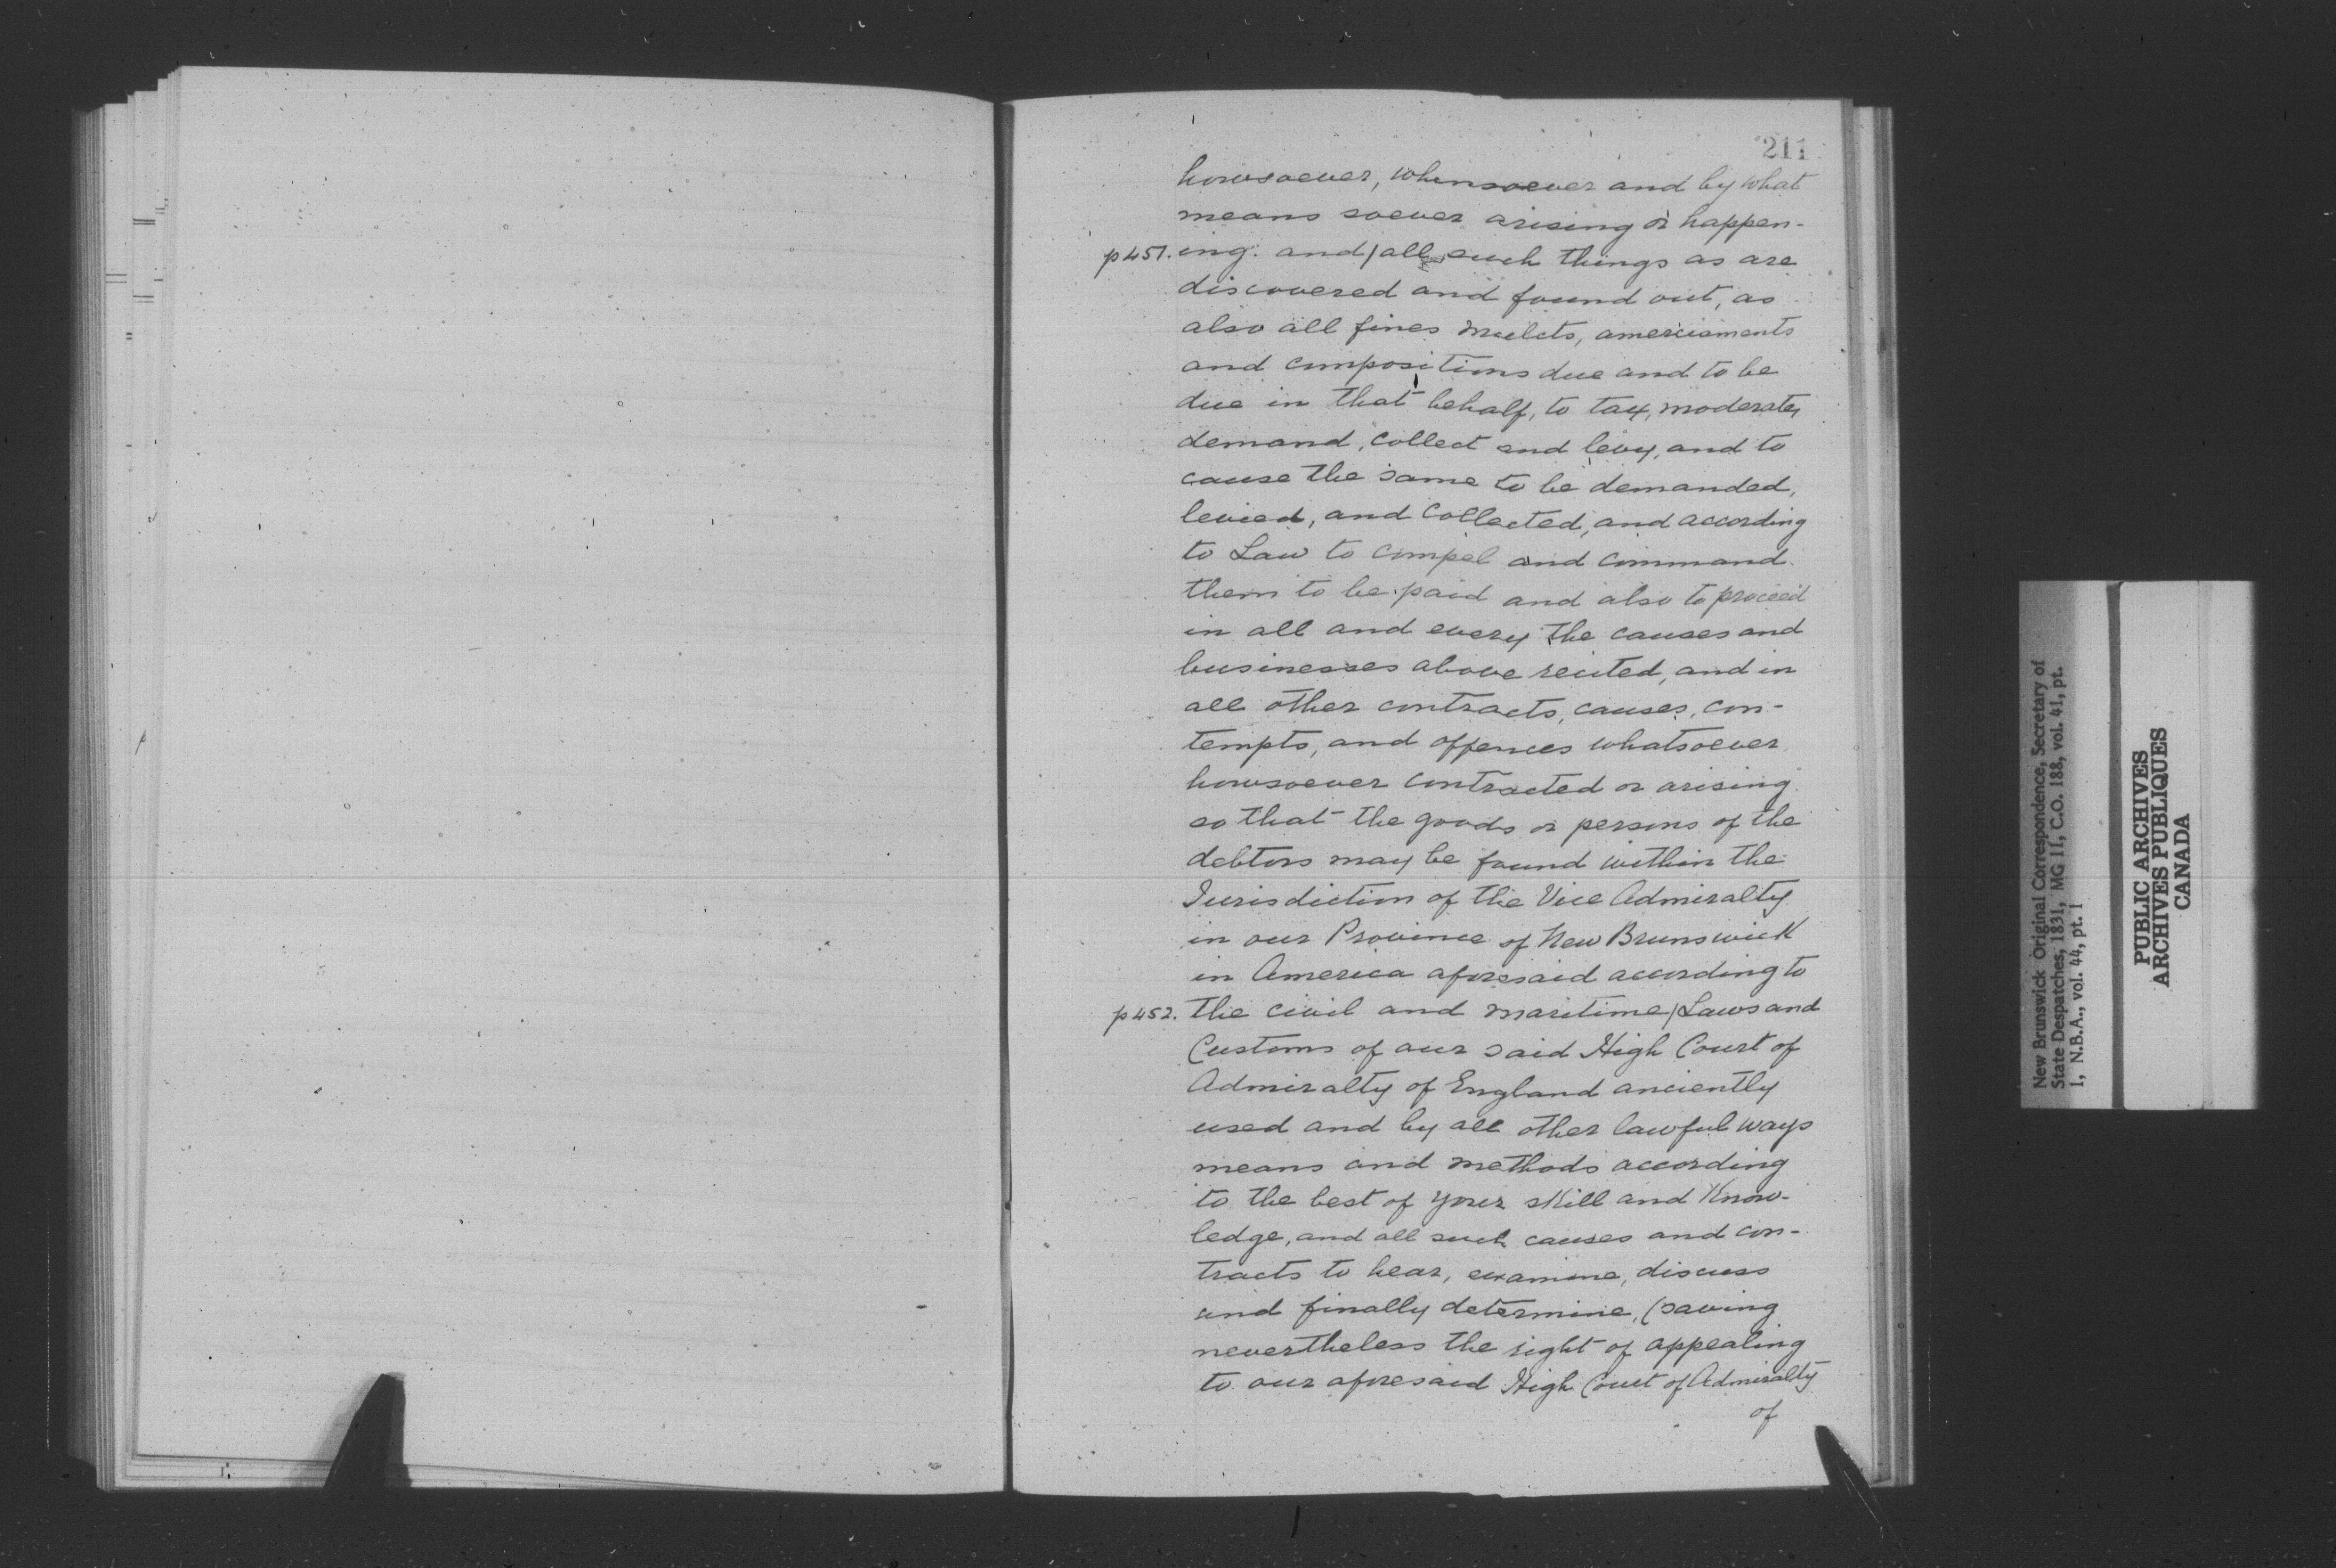 211
howsoever, whensoever and by what
means soever arising or happen-
p 451. ing. and / all such things as are
discovered and found out, as
also all fines mulcts, amerciaments
and compositions due and to be
due in that behalf, to tax, moderate,
demand, collect and levy, and to
cause the same to be demanded,
levied, and collected, and according
to Law to compel and command
them to be paid and also to proceed
in all and every the causes and
businesses above recited, and in
all other contracts, causes, con-
tempts, and offences whatsoever
howsoever contracted or arising
so that the goods or persons of the
debtors may be found within the
Jurisdiction of the Vice Admiralty
in our Province of New Brunswick
in America aforesaid according to
p 452. the civil and maritime / Laws and
Customs of our said High Court of
Admiralty of England anciently
used and by all other lawful ways
means and methods according
to the best of your skill and Know-
ledge, and all such causes and con-
tracts to hear, examine, discuss
and finally determine, (saving
nevertheless the right of appealing
to our aforesaid High Court of Admiralty
of
New Brunswick Original Correspondence, Secretary of
State Despatches, 1831, MG 11, C.O. 188, vol. 41, pt.
1, N.B.A., vol. 44, pt. 1
PUBLIC ARCHIVES
ARCHIVES PUBLIQUES
CANADA